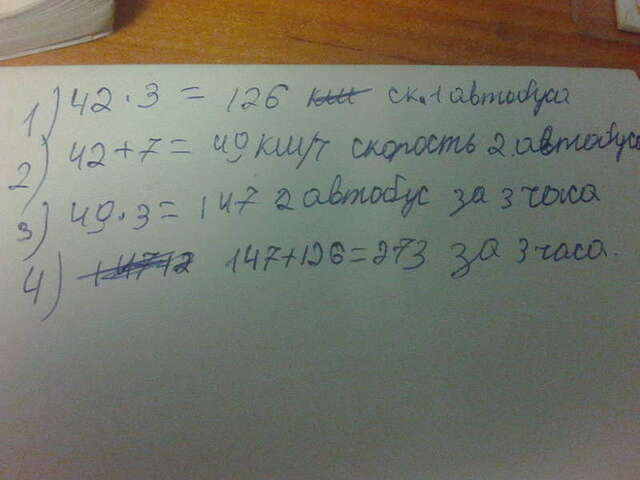 1) 42 · 3 = 126 ск. 1 автобуса
2) 42 + 7 = 49 км/ч скорость 2. автобуса
3) 49 · 3 = 147 2 автобус за 3 часа
4) 147 + 126 = 273 за 3 часа.